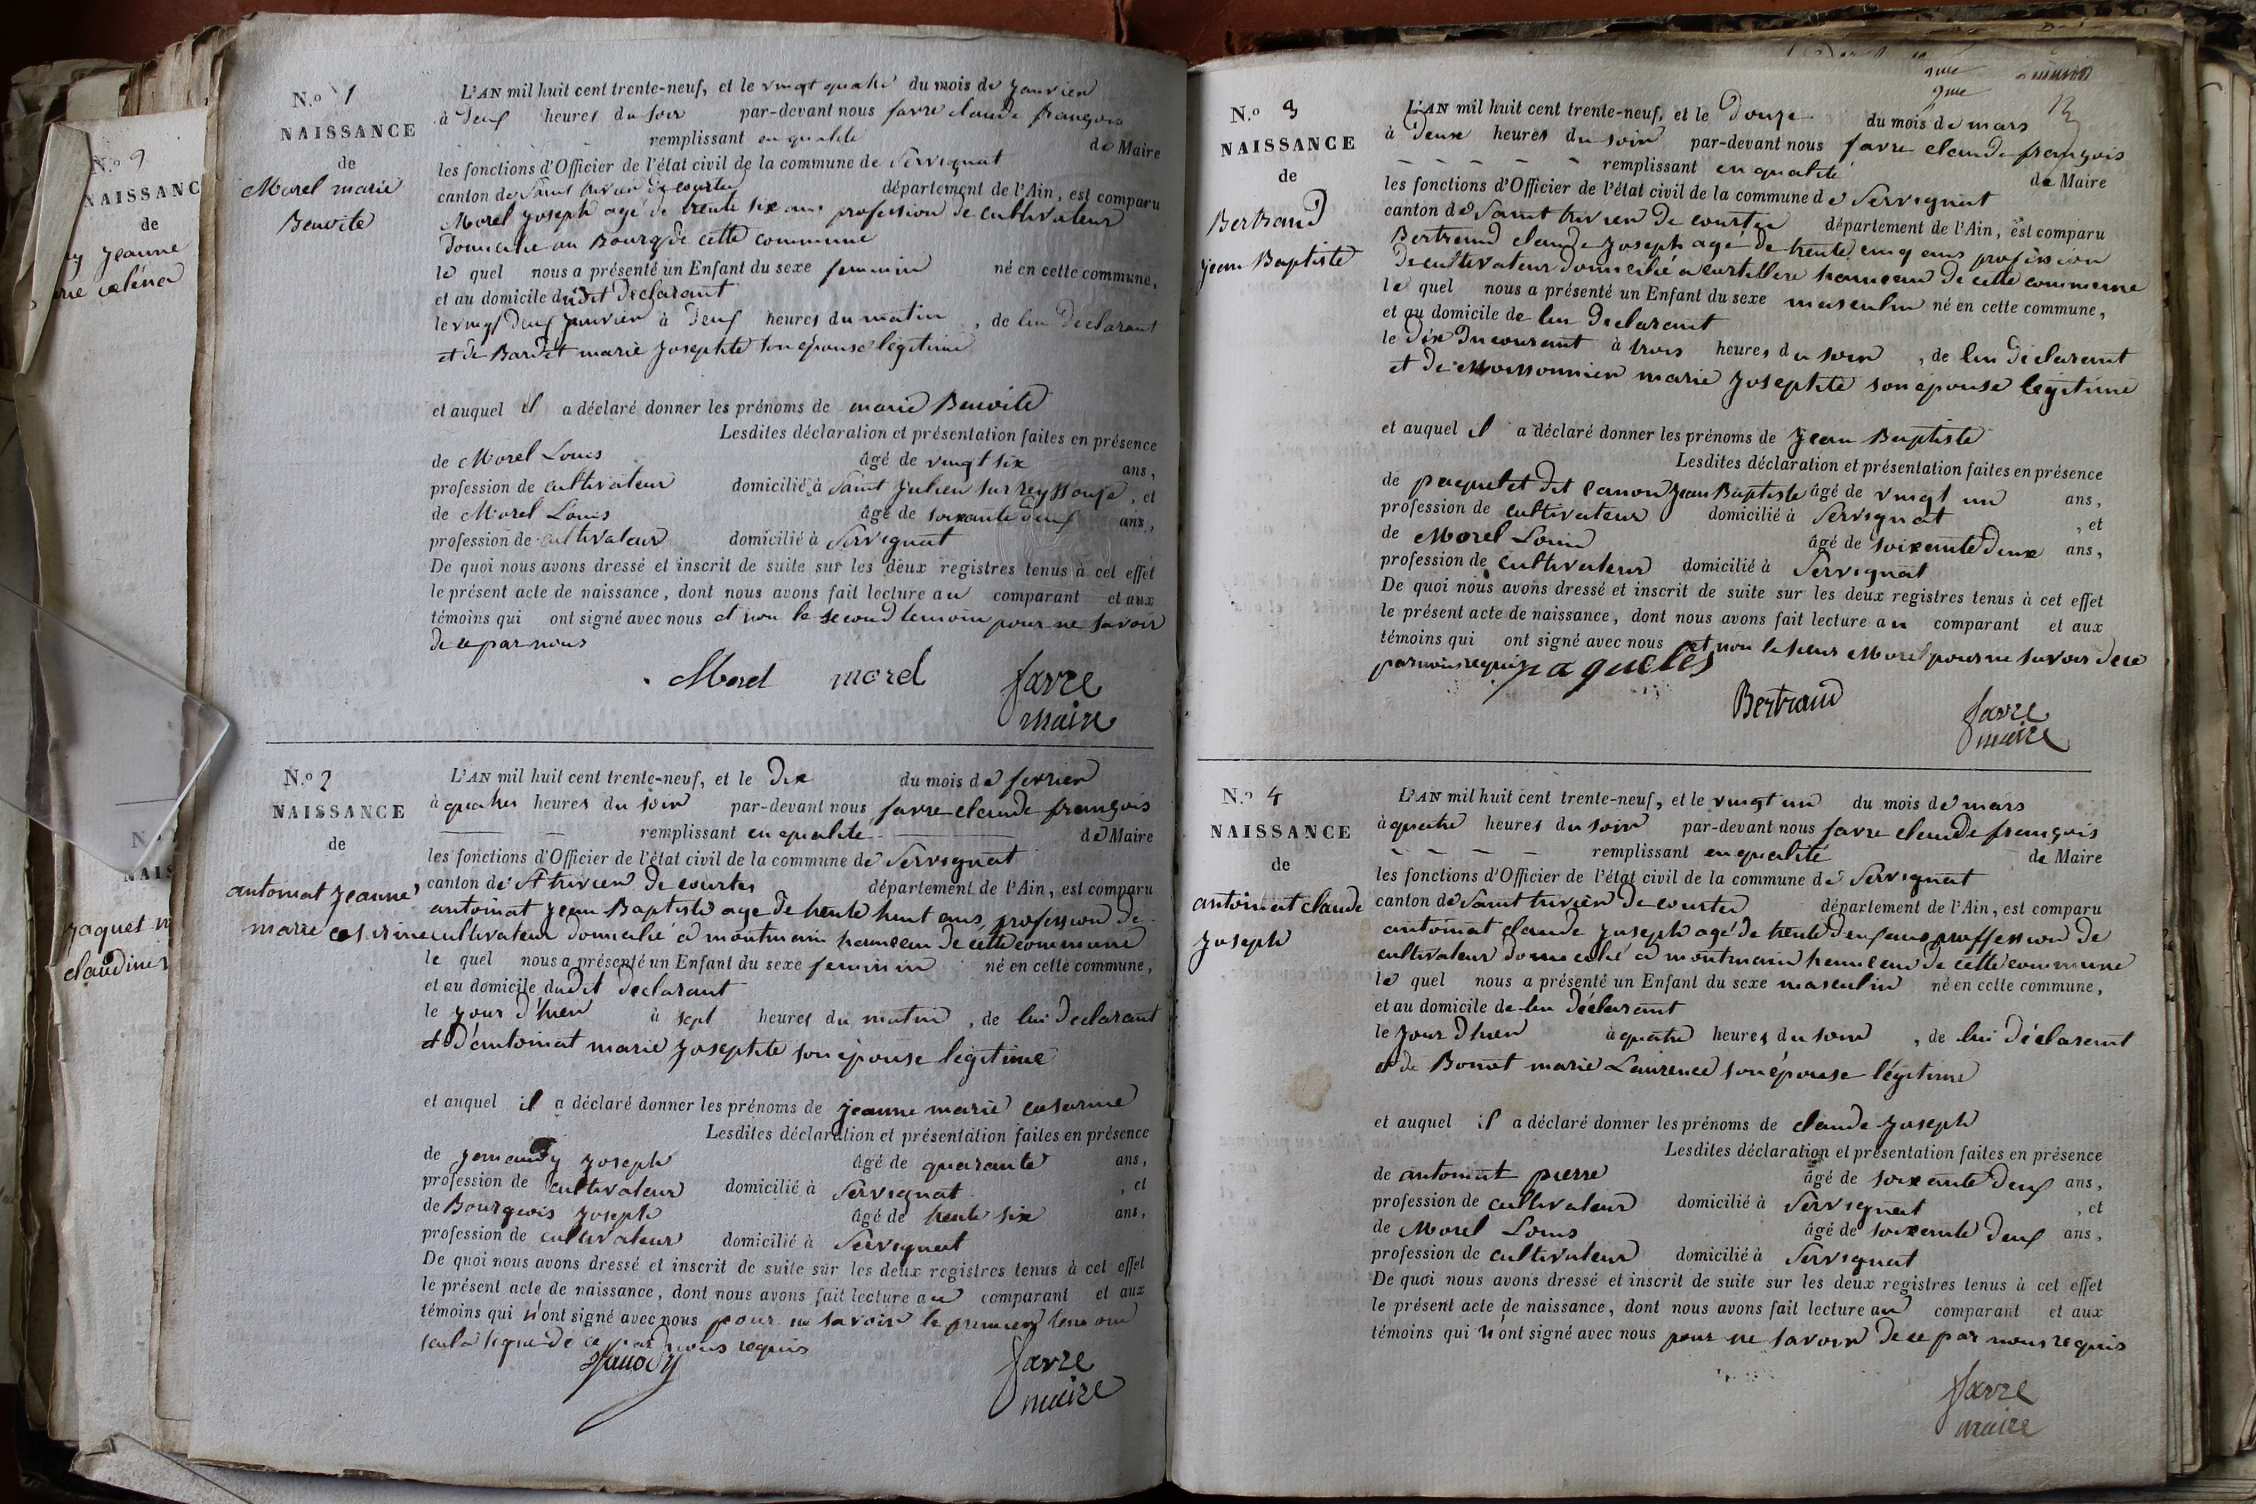 N.º 9
NAISSANC
de
Jeanne
N.º 1
NAISSANCE
de
Morel marie
Benoite
L'AN mil huit cent trente-neuf, et le vingt quatre du mois de janvier
à deux heures du soir par-devant nous favre claude françois
remplissant en qualité de Maire
les fonctions d'Officier de l'état civil de la commune de Servignat
canton de Saint trivier de courtes département de l'Ain, est comparu
Morel joseph agé de trente six ans profession de cultivateur
domicilié au Bourg de cette commune
le quel nous a présenté un Enfant du sexe feminin né en cette commune,
et au domicile dudit declarant
le vingt deux janvier à deux heures du matin, de lui declarant
et de Bardet marie josephte son épouse legitime
et auquel il a déclaré donner les prénoms de marie Benoite
Lesdites déclaration et présentation faites en présence
de Morel Louis âgé de vingt six ans,
profession de cultivateur domicilié à Saint julien sur reyssouse, et
de Morel Louis âgé de soixante deux ans,
profession de cultivateur domicilié à Servignat
De quoi nous avons dressé et inscrit de suite sur les deux registres tenus à cet effet
le présent acte de naissance, dont nous avons fait lecture au comparant et aux
témoins qui ont signé avec nous et non le second temoin pour ne savoir
de ce par nous
Morel morel favre
maire
N.º 2
NAISSANCE
de
antoinat jeanne
marie
L'AN mil huit cent trente-neuf, et le dix du mois de fevrier
à quatre heures du soir par-devant nous favre claude françois
remplissant en qualité de Maire
les fonctions d'Officier de l'état civil de la commune de Servignat
canton de St trivier de courtes département de l'Ain, est comparu
antoinat jean Baptiste agé de trente huit ans, profession de
cultivateur domicilié à montmain hameau de cette commune
le quel nous a présenté un Enfant du sexe feminin né en cette commune,
et au domicile dudit declarant
le jour d'hier à sept heures du matin, de lui declarant
et d'antoinat marie josephte son épouse legitime
et auquel il a déclaré donner les prénoms de jeanne marie
Lesdites déclaration et présentation faites en présence
de joseph âgé de quarante ans,
profession de cultivateur domicilié à Servignat, et
de Bourgeois joseph âgé de trente six ans,
profession de cultivateur domicilié à Servignat
De quoi nous avons dressé et inscrit de suite sur les deux registres tenus à cet effet
le présent acte de naissance, dont nous avons fait lecture au comparant et aux
témoins qui n'ont signé avec nous pour ne savoir le premier temoin
seul a signé de ce par nous requis
favre
maire
N.º 3
NAISSANCE
de
Bertrand
jean Baptiste
L'AN mil huit cent trente-neuf, et le douze du mois de mars
à deux heures du soir par-devant nous favre claude françois
remplissant en qualité de Maire
les fonctions d'Officier de l'état civil de la commune de Servignat
canton de Saint trivier de courtes département de l'Ain, est comparu
Bertrand claude joseph agé de trente cinq ans profession
de cultivateur domicilié à hameau de cette commune
le quel nous a présenté un Enfant du sexe masculin né en cette commune,
et au domicile de lui declarant
le dix du courant à trois heures du soir, de lui declarant
et de Moissonnier marie josephte son épouse légitime
et auquel il a déclaré donner les prénoms de jean Baptiste
Lesdites déclaration et présentation faites en présence
de paquelet dit jean Baptiste âgé de vingt un ans,
profession de cultivateur domicilié à Servignat, et
de Morel Louis âgé de soixante deux ans,
profession de cultivateur domicilié à Servignat
De quoi nous avons dressé et inscrit de suite sur les deux registres tenus à cet effet
le présent acte de naissance, dont nous avons fait lecture au comparant et aux
témoins qui ont signé avec nous et non le sieur Morel pour ne savoir de ce
par nous requis
Bertrand favre
maire
N.º 4
NAISSANCE
de
antoinat claude
joseph
L'AN mil huit cent trente-neuf, et le vingt un du mois de mars
à quatre heures du soir par-devant nous favre claude françois
remplissant en qualité de Maire
les fonctions d'Officier de l'état civil de la commune de Servignat
canton de Saint trivier de courtes département de l'Ain, est comparu
antoinat claude joseph agé de trente deux ans proffession de
cultivateur domicilié à montmain hameau de cette commune
le quel nous a présenté un Enfant du sexe masculin né en cette commune,
et au domicile de lui déclarant
le jour d'hier à quatre heures du soir, de lui déclarant
et de Bonnot marie Laurence son épouse légitime
et auquel il a déclaré donner les prénoms de claude joseph
Lesdites déclaration et présentation faites en présence
de antoinat pierre âgé de soixante deux ans,
profession de cultivateur domicilié à Servignat, et
de Morel Louis âgé de soixante deux ans,
profession de cultivateur domicilié à Servignat
De quoi nous avons dressé et inscrit de suite sur les deux registres tenus à cet effet
le présent acte de naissance, dont nous avons fait lecture au comparant et aux
témoins qui n'ont signé avec nous pour ne savoir de ce par nous requis
favre
maire